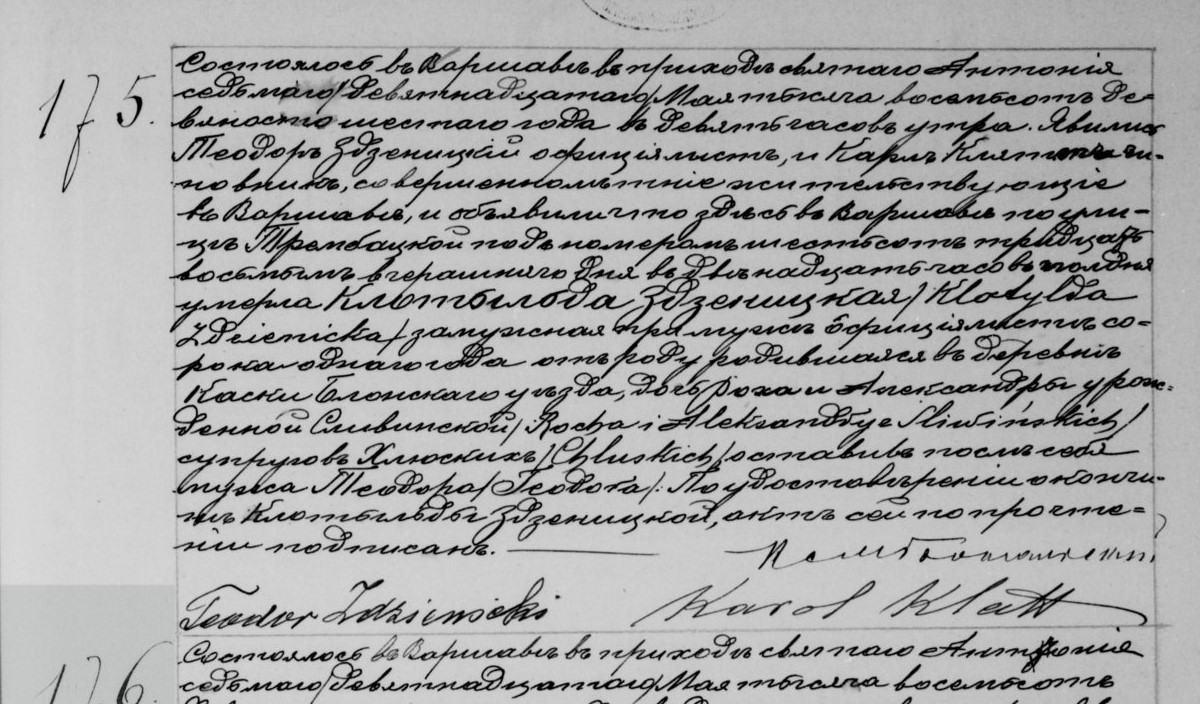 175.
Состоялось въ Варшавѣ въ приходѣ святаго Антонія
седьмаго/девятнадцатаго/Мая тысяча восемьсотъ де=
вяносто шестаго года въ девять часовъ утра. Явились
Теодоръ Здзеницкій офиціялистъ, и Карлъ Кляттъ чи-
новникъ, совершеннолѣтніе жительствующіе
въ Варшавѣ, и объявили что здѣсь въ Варшавѣ по ули-
цѣ Трембацкой подъ номеромъ шестьсотъ тридцать
восьмымъ вчерашняго дня въ двѣнадцать часовъ полдня
умерла Клотыльда Здзеницкая/Klotylda
Zdzienicka/замужная при мужѣ офиціялистѣ со-
рока одного года отъ роду родившаяся въ деревнѣ
Каски Блонскаго уѣзда, дочь Роха и Александры урож=
денной Сливинской/Rocha i Aleksandry z Śliwińskich/
супруговъ Хлюскихъ/Chluskich/оставивъ послѣ себя
мужа Теодора/Teodora/. По удостовѣреніи о кончи-
нѣ Клотыльды Здзеницкой, актъ сей по прочте=
ніи подписанъ.
Teodor Zdzienicki Karol Klatt
176.
Состоялось въ Варшавѣ въ приходѣ святаго Антонія
седьмаго/девятнадцатаго/Мая тысяча восемьсотъ